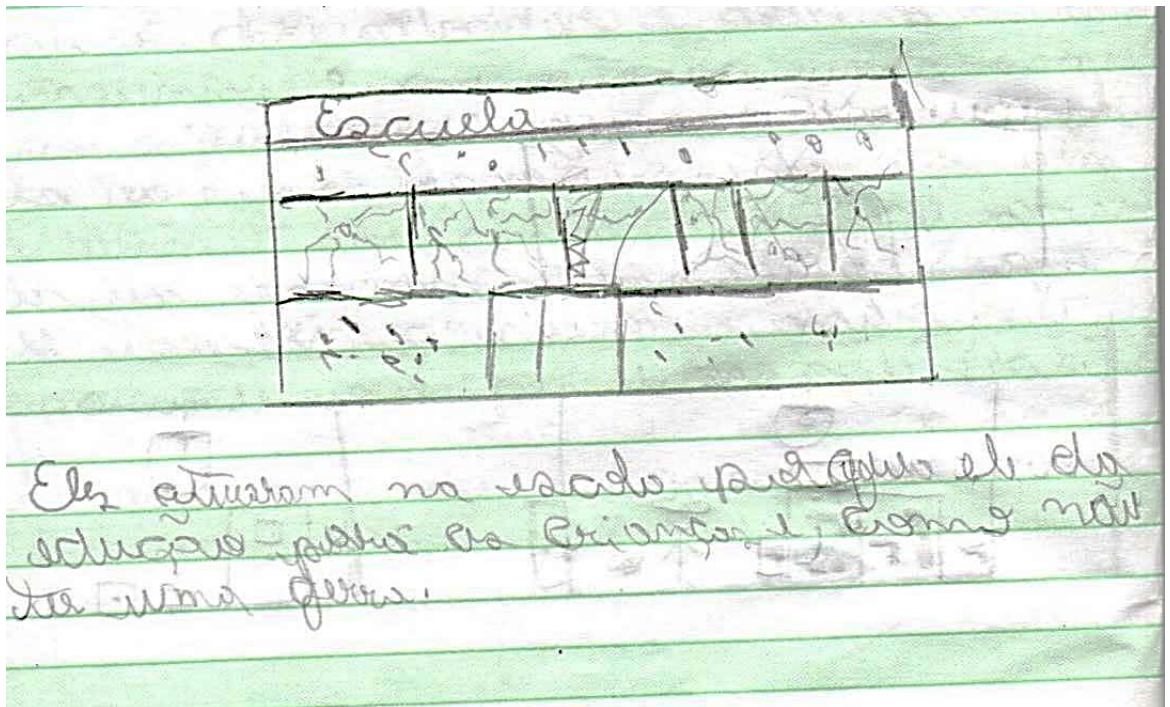 Escuela
Elz atiraram na escola porque el da
edução para as crianças e, como não
ter uma gerra.